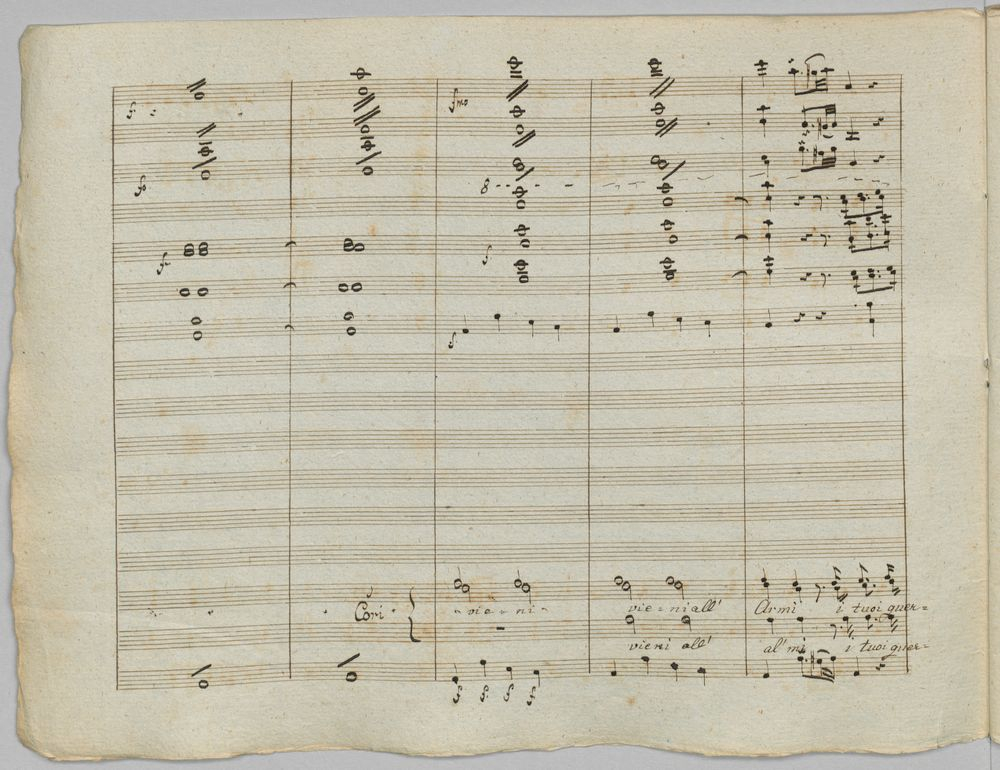 fmo
8
Cori
vie - ni
vie = ni all'
Armi
i tuoi guer=
vieni all'
al' mi
i tuoi guer=